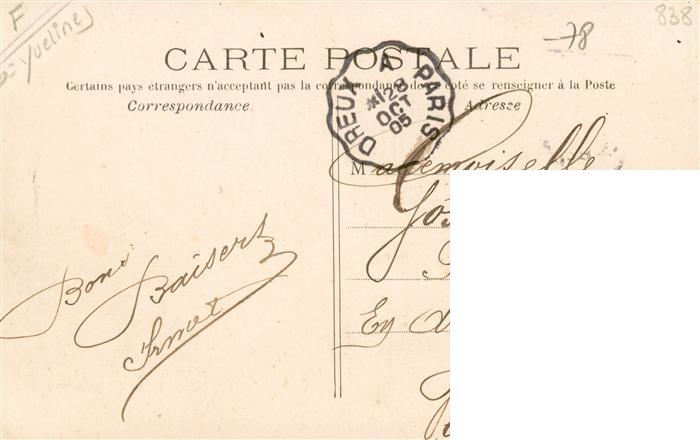 F
Yvelines
-78
838
CARTE POSTALE
Certains pays étrangers n'acceptant pas la correspondance de ce côté se renseigner à la Poste
Correspondance
Adresse
DREUX A PARIS
28
OCT
05
Mademoiselle
En
Bons
Baisers